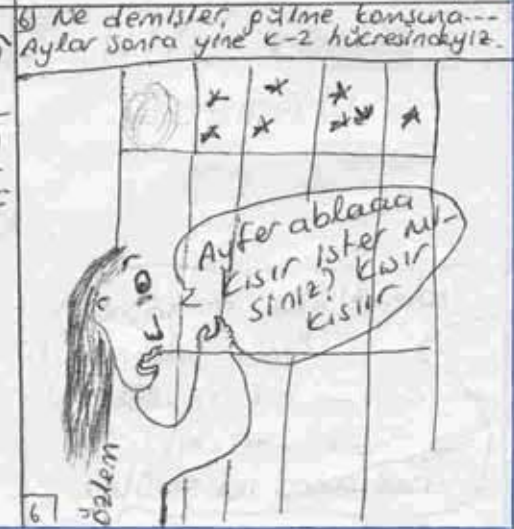 6) Ne demişler, gülme komşuna---
Aylar sonra yine K-2 hücresindeyiz.
Ayfer ablaaa
kısır ister mi-
siniz? kısır
kısıır
özlem
6